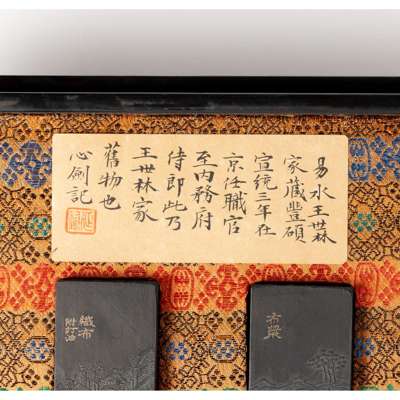 易水王世森
家藏豐碩
宣統三年在
京任職官
至內務府
侍郎此乃
王世林家
舊物也
心劍記
織布
附打油
布漿